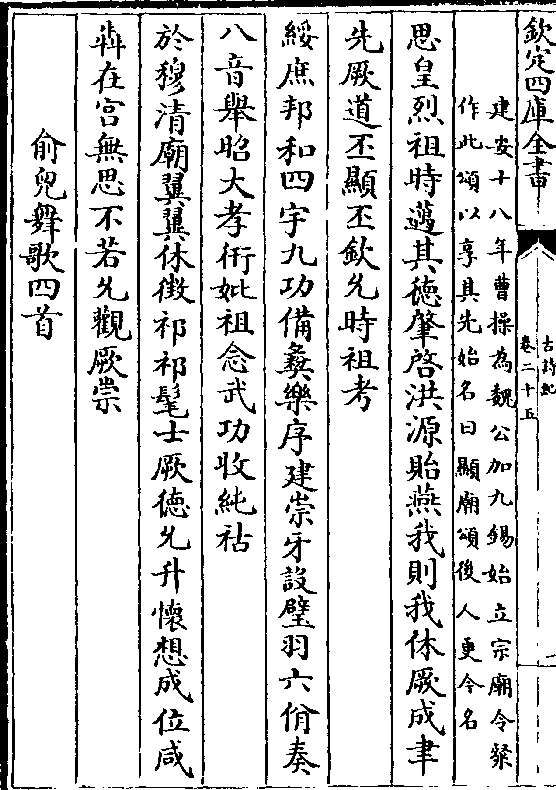 欽定四庫全書
古詩紀
卷二十五
一
建安十八年曹操為魏公加九錫始立宗廟令粲
作此頌以享其先始名曰顯廟頌後人更今名
思皇烈祖時邁其德肇啓洪源貽燕我則我休厥成聿
先厥道丕顯丕欽允時祖考
綏庶邦和四宇九功備彝樂序建崇牙設璧羽六佾奏
八音舉昭大孝衎妣祖念武功收純祜
於穆清廟翼翼休徴祁祁髦士厥德允升懷想成位咸
犇在宮無思不若允觀厥崇
俞兒舞歌四首